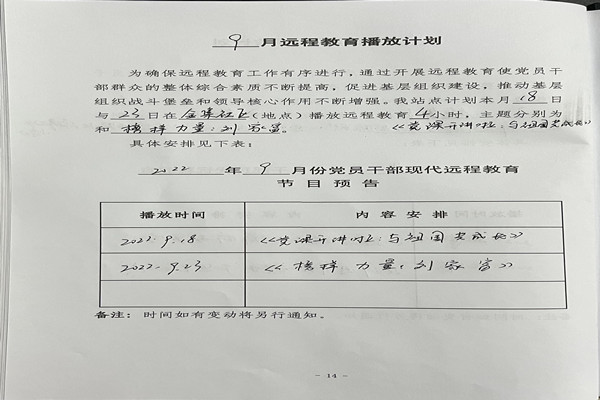 9 月远程教育播放计划
为确保远程教育工作有序进行,通过开展远程教育使党员干
部群众的整体综合素质不断提高,促进基层组织建设,推动基层
组织战斗堡垒和领导核心作用不断增强。我站点计划本月 18 日
与 23 日在 (地点)播放远程教育 4 小时,主题分别为
《党课开讲啦:与祖国共成长》
和 榜样力量:刘家富。
具体安排见下表:
2022 年 9 月份党员干部现代远程教育
节目预告
播放时间 内容安排
2022.9.18 《党课开讲啦:与祖国共成长》
2022.9.23 《榜样力量:刘家富》
备注:时间如有变动将另行通知。
- 14 -